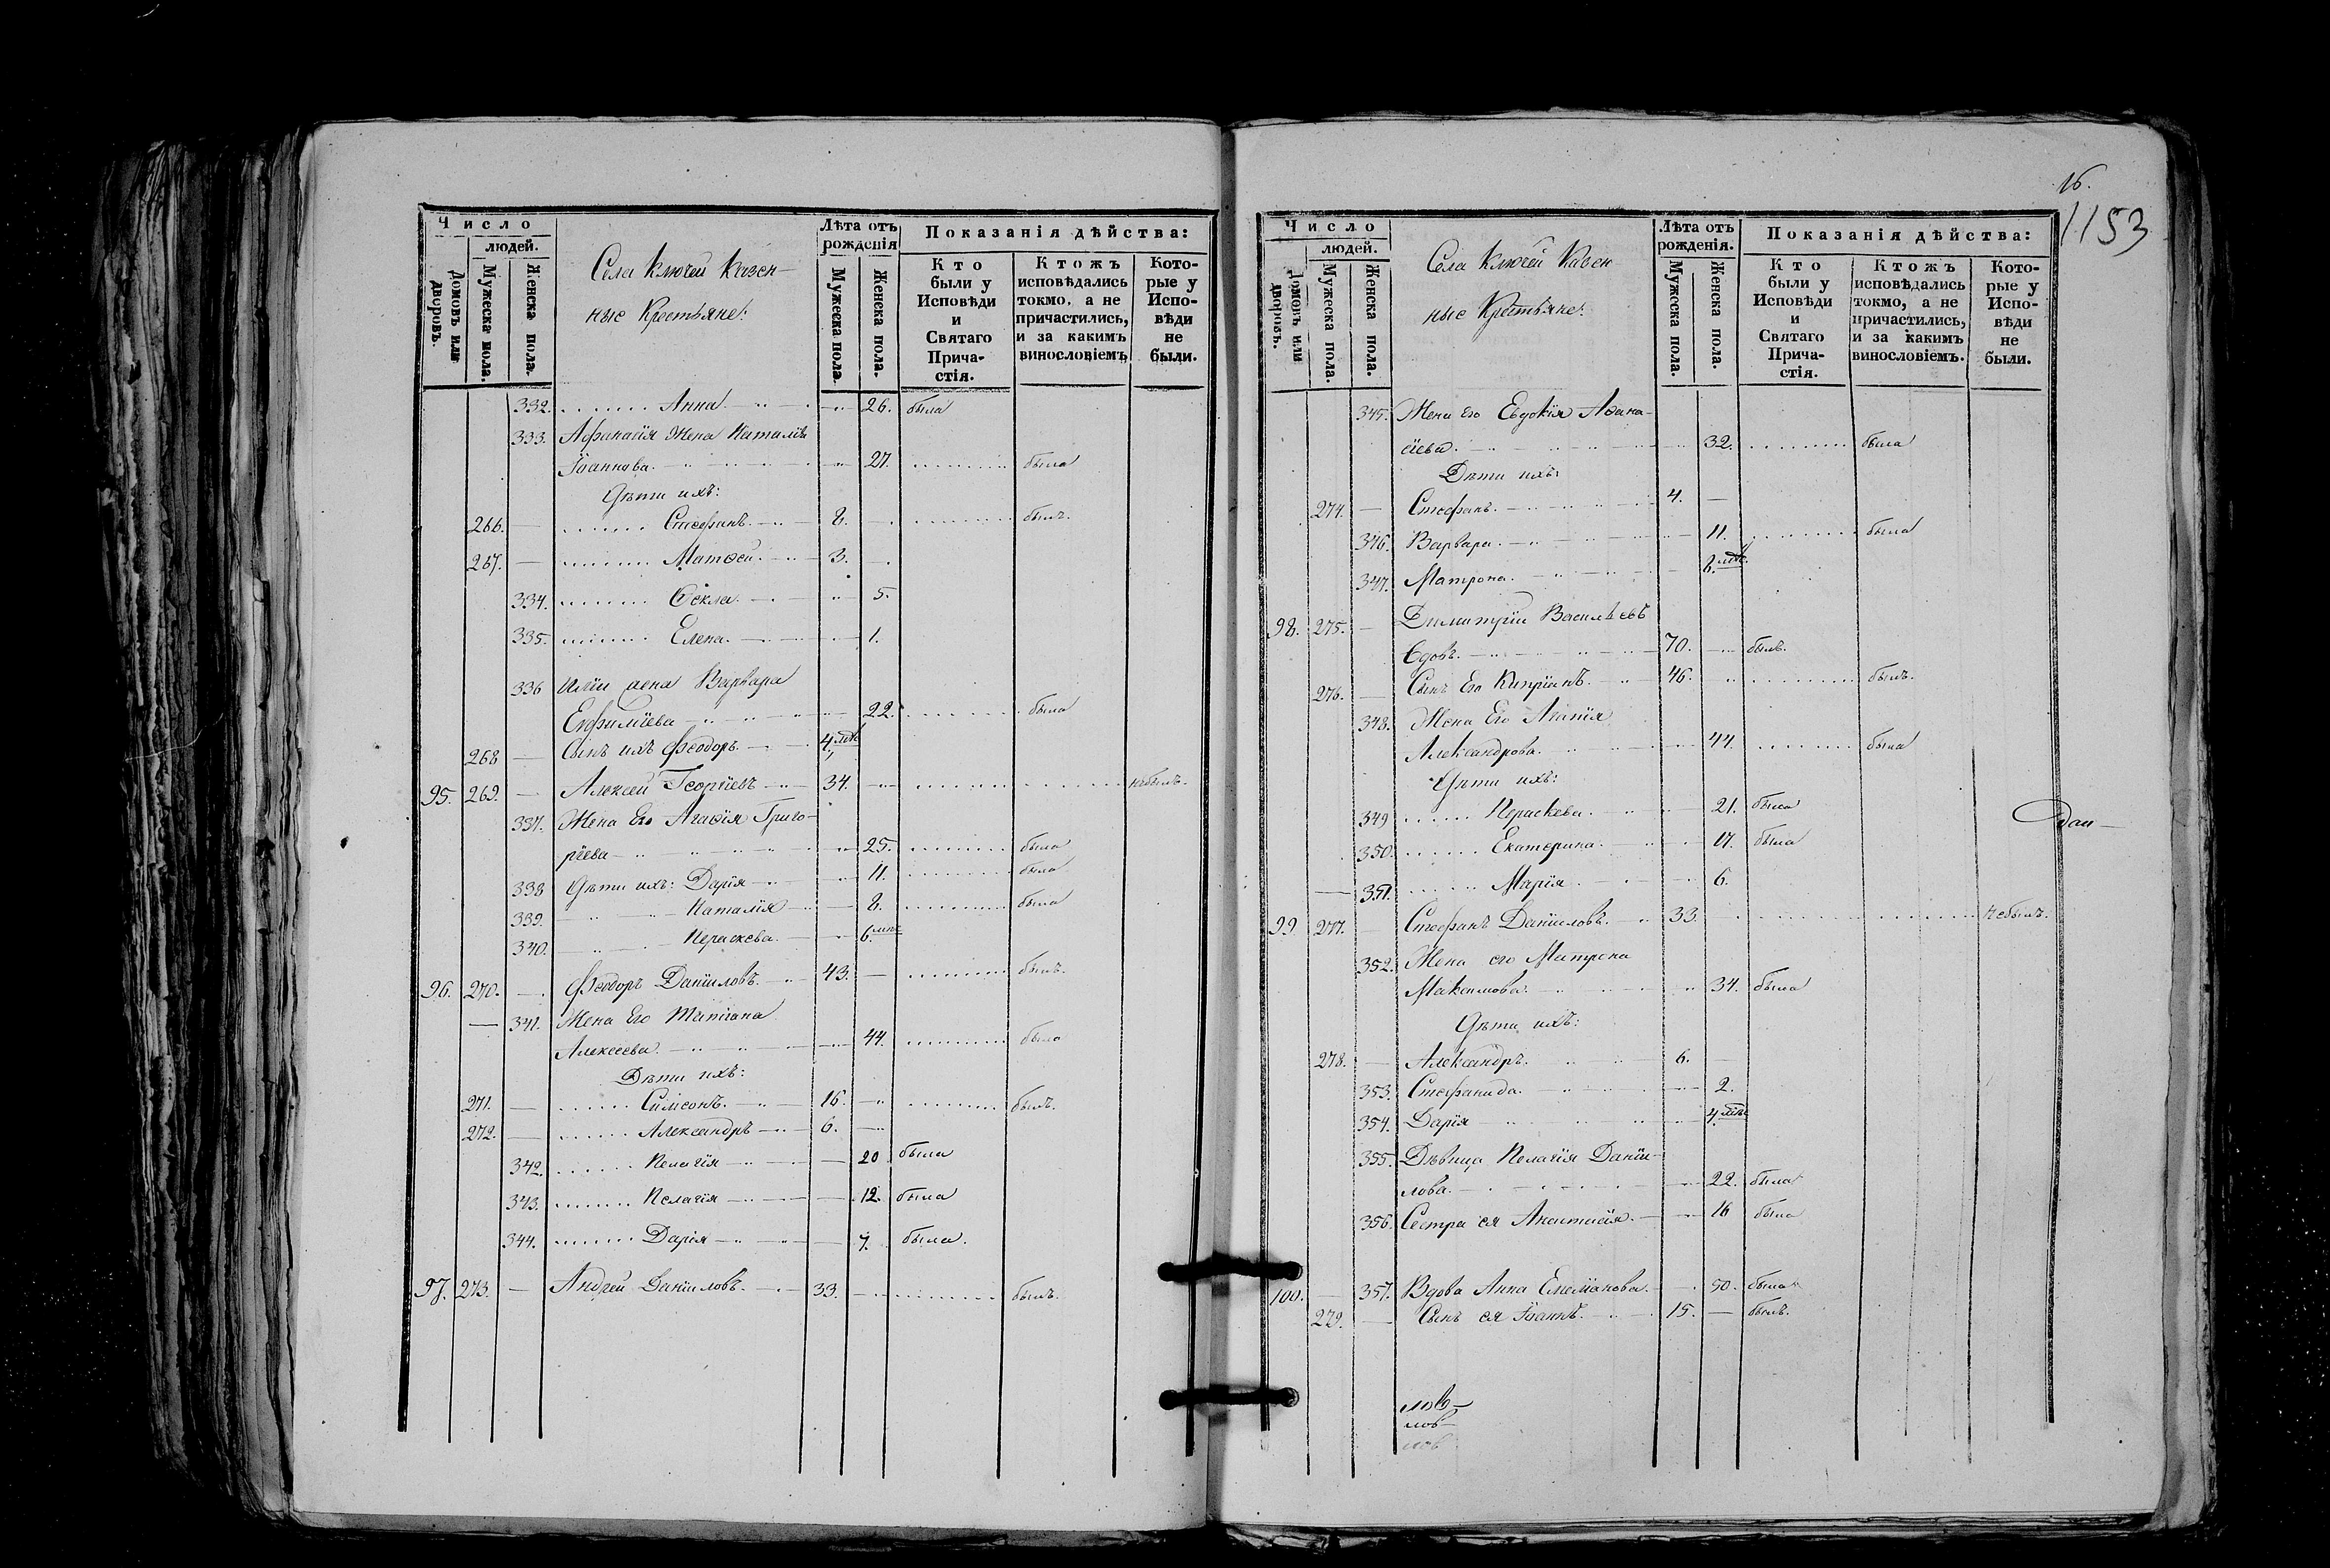 Число
людей.
Домовъ или дворовъ.
Мужеска пола.
Женска пола.
Села Ключей Казен-
ные Крестьяне:
Лѣта отъ рожденія
Мужеска пола.
Женска пола.
Показанія дѣйства:
Кто были у Исповѣди и Святаго Прича-стія.
Ктожъ исповѣдались токмо, а не причастились, и за какимъ винословіемъ
Кото-рые у Испо-вѣди не были.
332. Анна 26. была
333. Афанасія Жена Наталія
Іоаннова. 27. была
Дѣти ихъ:
266. — Стефанъ. 8. — былъ.
267. — Матѳей. 3. —
334. Ѳекла. 5.
335. Елена. 1.
336 Иліи жена Варвара
Евфиміева 22. была
268 — Сынъ ихъ Феодоръ. 4. мѣс
95. 269. — Алексей Георгіевъ 34. — небылъ.
337. Жена Его Агафія Григо-
ріева 25. была
338 Дѣти ихъ: Дарія 11. была
339. Наталія 8. была
340. Пераскева. 6. мѣс
96. 270. — Феодоръ Даніиловъ. 43. — былъ.
— 341. Жена Его Татіана
Алексеева. 44. была
Дѣти ихъ:
271. — Симеонъ. 16. — былъ.
272. — Александръ 6. —
342. Пелагія 20. была
343. Пелагія 12. была
344. Дарія 7. была.
97. 273. — Андрей Даніиловъ. 33. — былъ.
16.
1153
Число
людей.
Домовъ или дворовъ.
Мужеска пола.
Женска пола.
Села Ключей Казен
ные Крестьяне:
Лѣта отъ рожденія.
Мужеска пола.
Женска пола.
Показанія дѣйства:
Кто были у Исповѣди и Святаго Прича-стія.
Ктожъ исповѣдались токмо, а не причастились, и за какимъ винословіемъ.
Кото-рые у Испо-вѣди не были.
345. Жена Его Евдокія Аѳана-
сіева. 32. была
Дѣти ихъ:
274. — Стефанъ. 4. —
346. Варвара. 11. была
347. Матрона. 6. мѣс.
98. 275. — Димитрій Васильевъ
Вдовъ. 70. былъ.
276. — Сынъ Его Кипріанъ. 46. былъ.
348. Жена Его Агапія
Александрова. 44. была
Дѣти ихъ:
349 Пераскева. 21. была
350. Екатерина. 17. была
— 351. Марія. 6.
99. 277. — Стефанъ Даніиловъ. 33. Небылъ.
352. Жена его Матрона
Максимова. 34. была
Дѣти ихъ:
278. — Александръ. 6. —
353. Стефанида. 2.
354. Дарія 4. мѣс
355. Дѣвица Пелагія Даніи-
лова. 22. была
356. Сестра ея Анастасія. 16 была
100. — 357. Вдова Анна 50. была
279. — Сынъ ея Іоаннъ. 15. — былъ.
лов-
лов-
лов